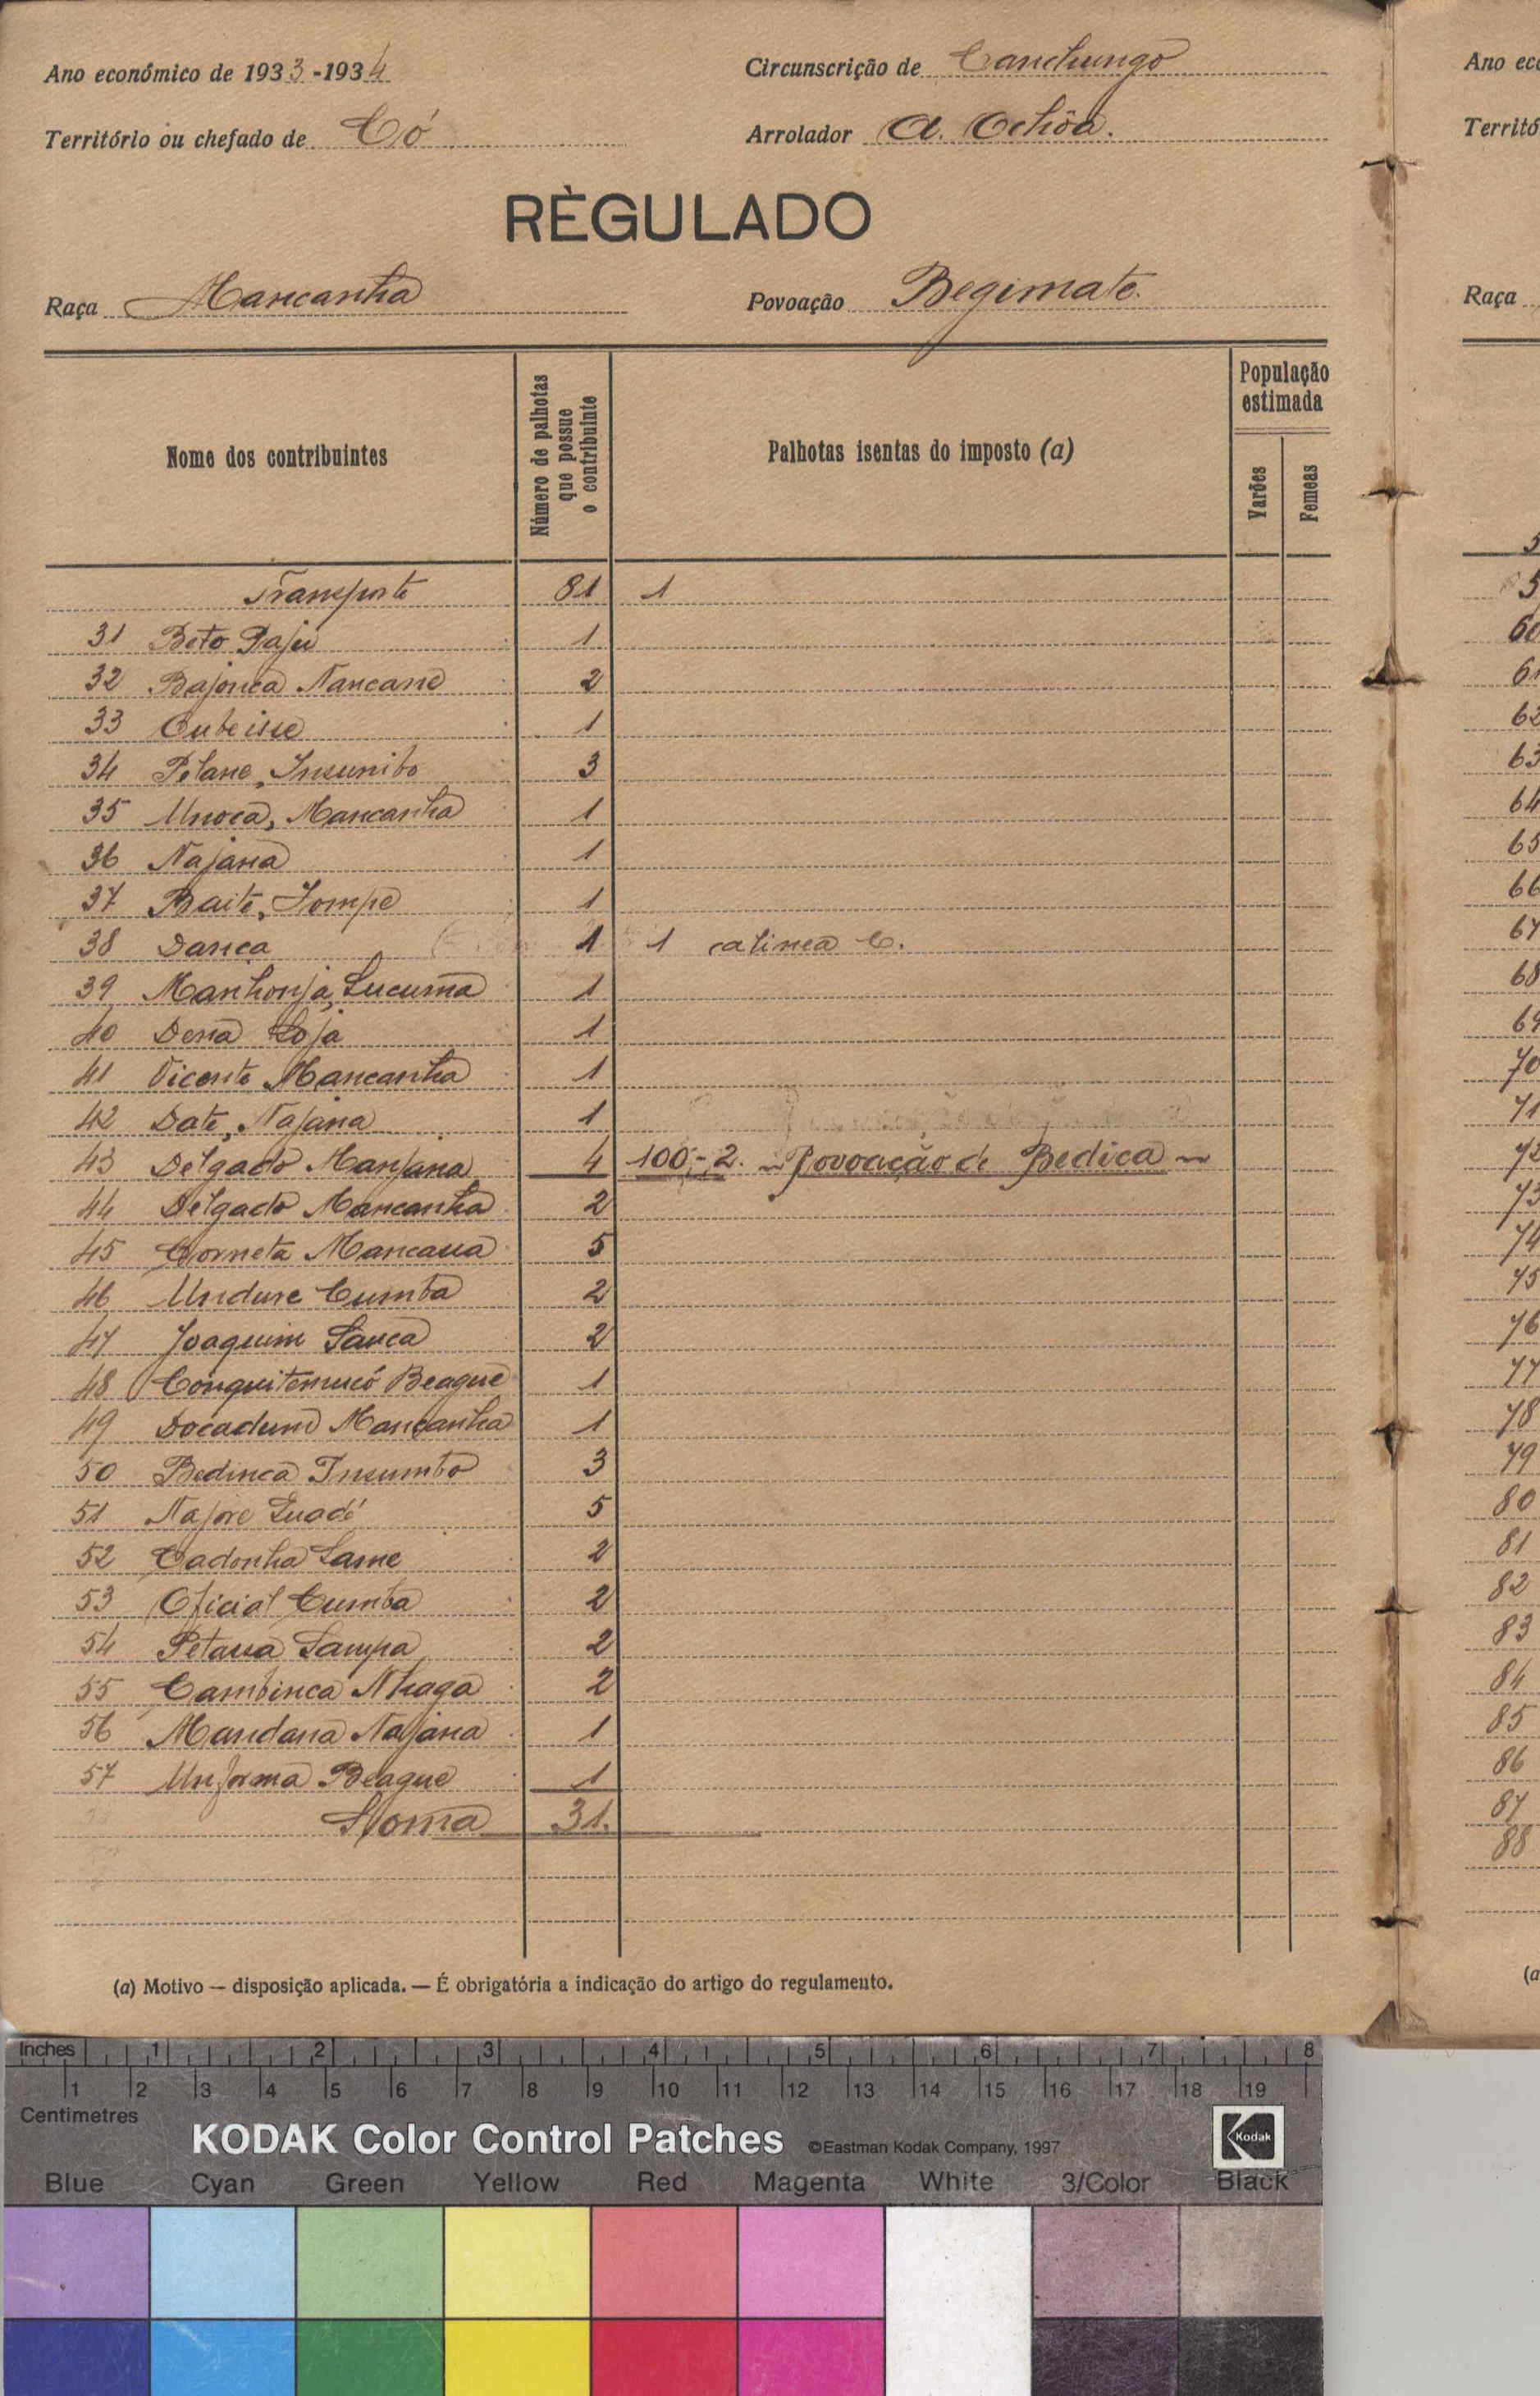 Ano económico de 1933-1934 Circunscrição de Canchungo
Território ou chefado de Có Arrolador A. Ochôa.
RÈGULADO
Raça Mancanha Povoação Begimate.
Nome dos contribuintes Número de palhotas que possue o contribuinte Palhotas isentas do imposto (a) População estimada Varões Femeas
Transporte 81 1
31 Beto Paju 1
32 Bajonca Nancane 2
33 Oubeisse 1
34 Pelane, Insumbo 3
35 Unoca, Mancanha 1
36 Najana 1
37 Baite, Jompe 1
38 Danca 1 1 alinea C.
39 Manhonja, Lucuma 1
40 Dena Loja 1
41 Vicente Mancanha 1
42 Date, Najana 1
43 Delgado Manjana 4 100,-2. Povoação de Bedica
44 Delgado Mancanha 2
45 Corneta Mancaua 5
46 Undure Cumba 2
47 Joaquim Sanca 2
48 Conquitemucó Beague 1
49 Docadum Mancanha 1
50 Bedinca Insumbo 3
51 Najore Quadé 5
52 Cadonha Same 2
53 Oficial Cumba 2
54 Petaua Sampa 2
55 Cambinca Nhaga 2
56 Mandana Najana 1
57 Unforma Beague 1
Soma 31.
(a) Motivo — disposição aplicada. — É obrigatória a indicação do artigo do regulamento.
Ano eco
Territó
Raça
5
5
60
61
62
63
64
65
66
67
68
69
70
71
72
73
74
75
76
77
78
79
80
81
82
83
84
85
86
87
88
(a
Inches 1 2 3 4 5 6 7 8
1 2 3 4 5 6 7 8 9 10 11 12 13 14 15 16 17 18 19
Centimetres
KODAK Color Control Patches ©Eastman Kodak Company, 1997 Kodak
Blue Cyan Green Yellow Red Magenta White 3/Color Black